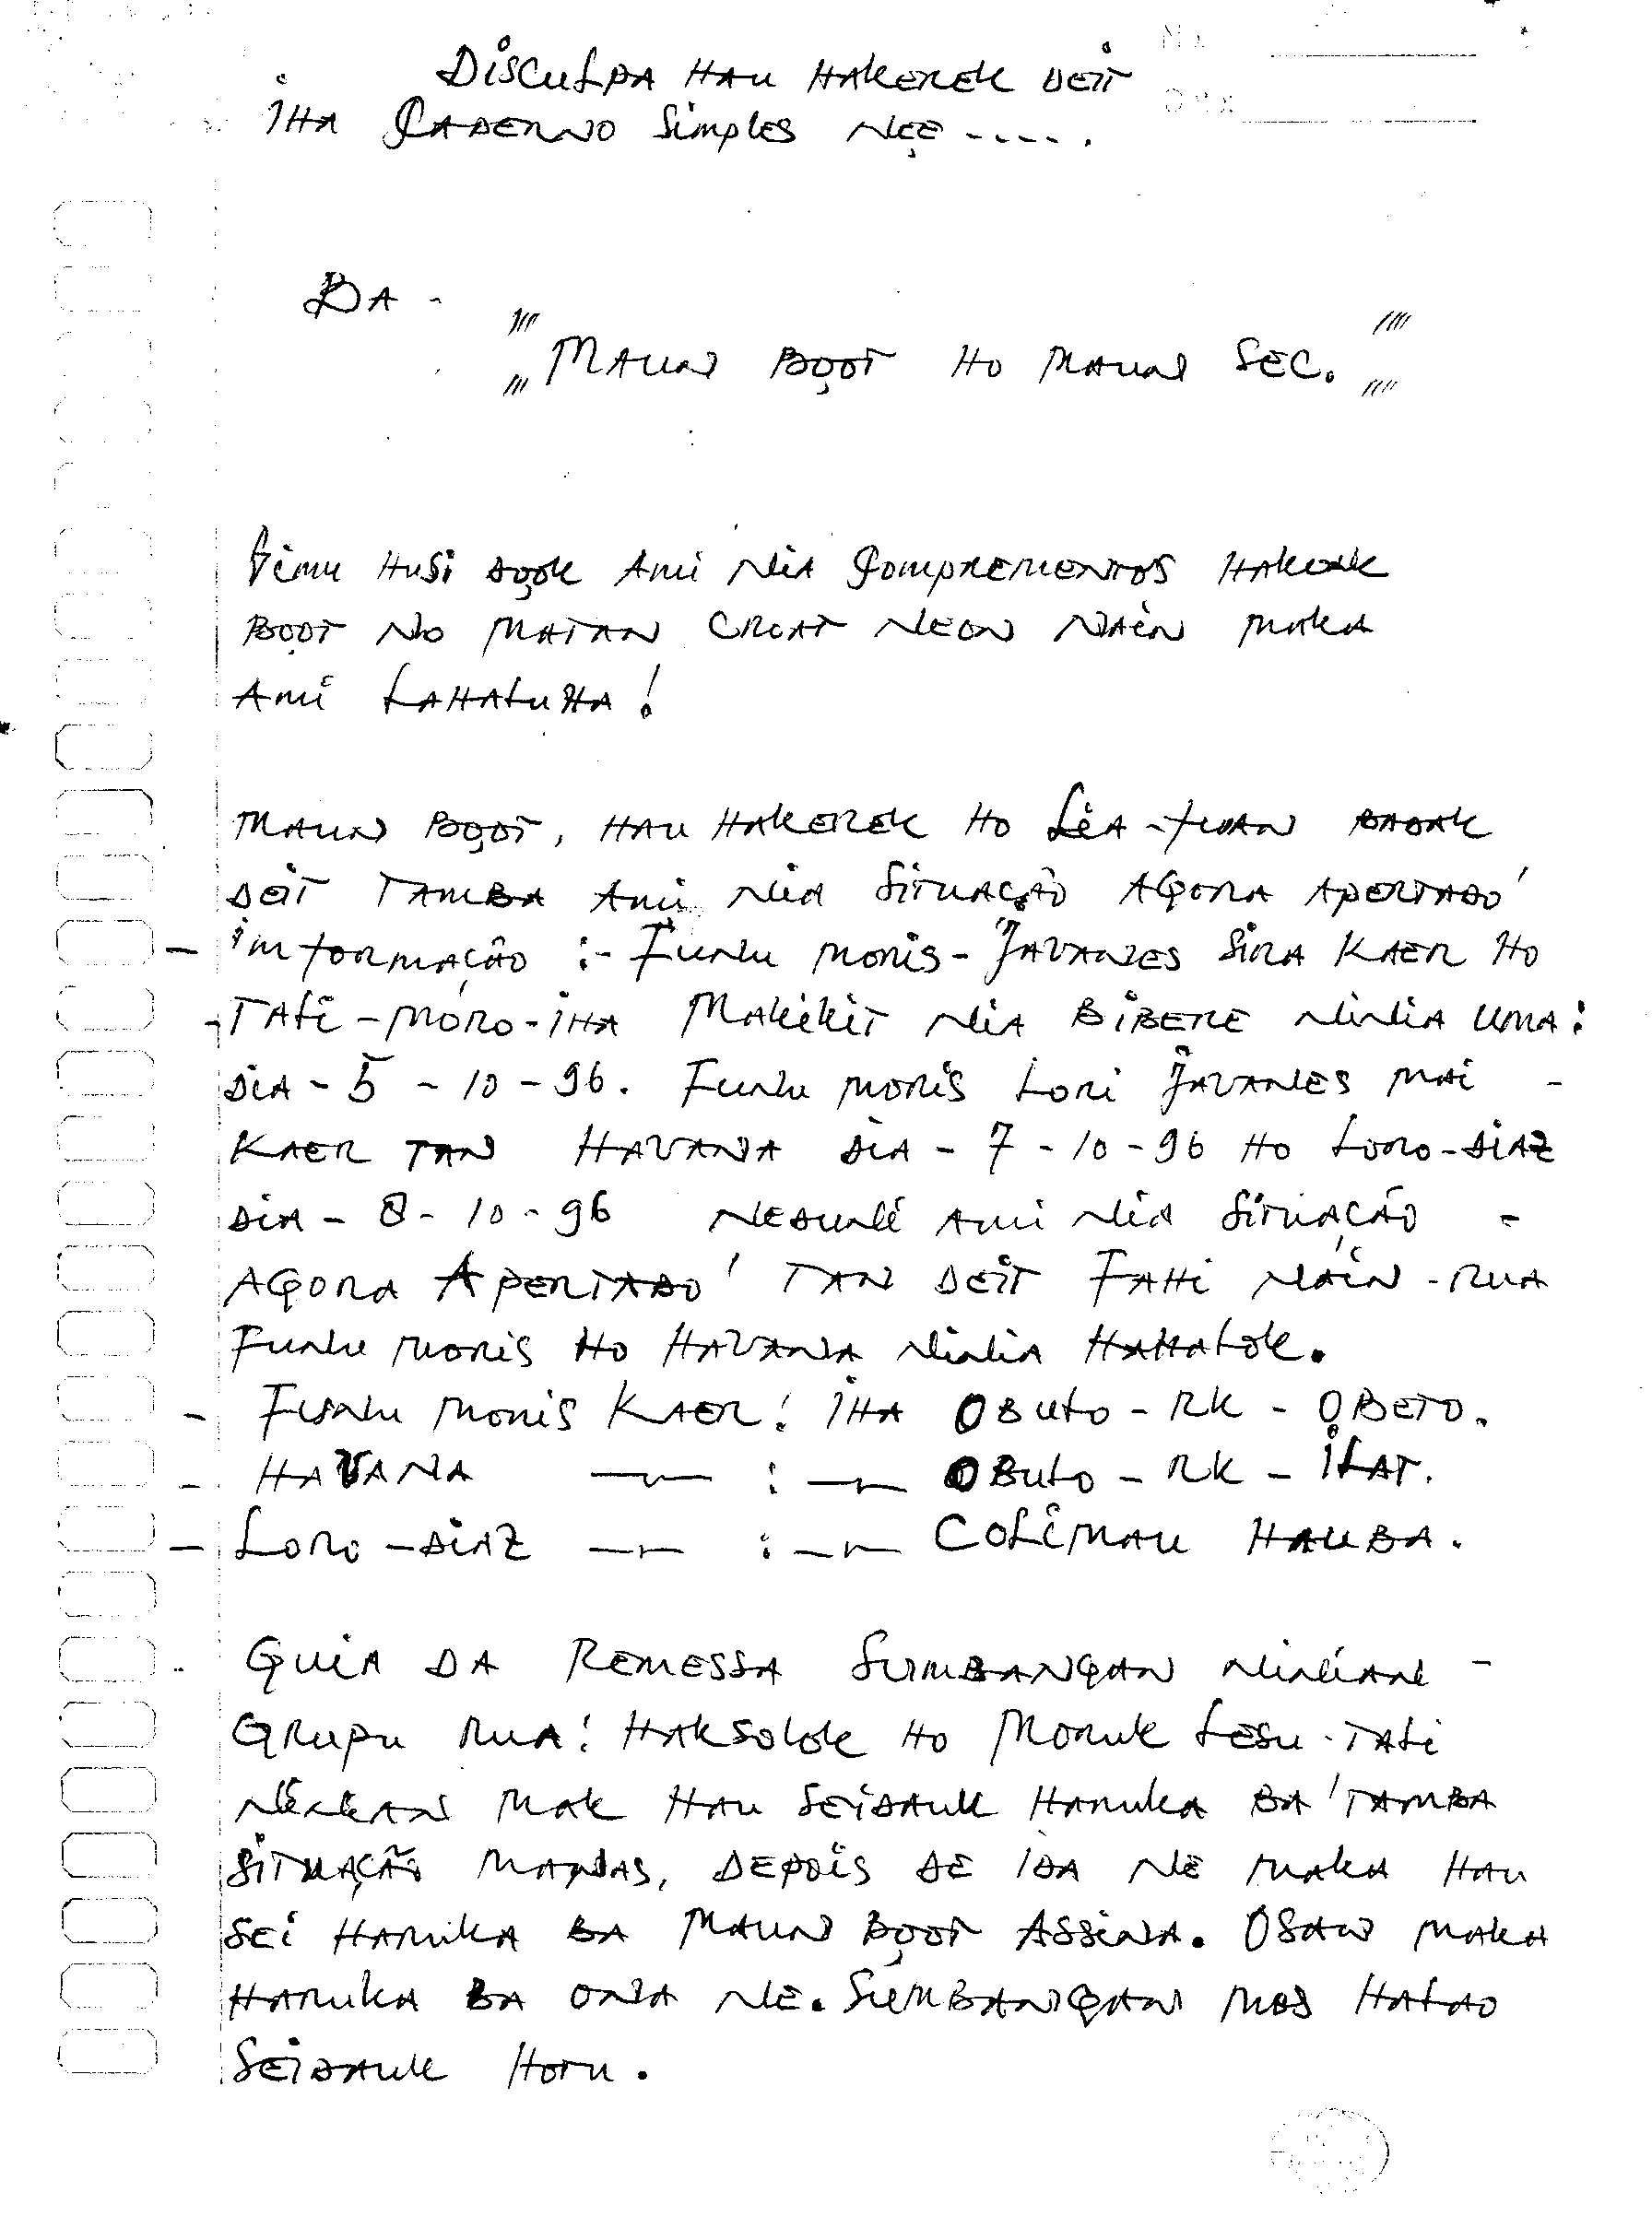 DISCULPA HAU HAKEREK DEIT
IHA CADERNO Simples NEE -----.
BA -
"MAUN BOOT HO MAUN SEC."
HUSI DOOK AMI NIA COMPREMENTOS HAKOAK
BOOT NO MATAN CROAT NEON NAIN MAKA
AMI LAHALUHA!
MAUN BOOT, HAU HAKEREK HO LIA-FUAN BADAK
DEIT TAMBA AMI NIA SITUAÇÃO AGORA APERTADO'
- INFORMAÇÃO :- FUNU MORIS - JAVANES SIRA KAER HO
- TALI-MORO-IHA MAKIKIT NIA BIBERE NINIA UMA:
DIA - 5 - 10 - 96. FUNU MORIS LORI JAVANES MAI -
KAER TAN HAVANA DIA - 7 - 10 - 96 HO LORO-DIAZ
DIA - 8 - 10 - 96 NEDUNI AMI NIA SITUAÇÃO -
AGORA APERTADO' TAN DEIT FAHI NAIN-RUA
FUNU MORIS HO HAVANA NINIA HAHALOK.
- FUNU MORIS KAER: IHA OBULO - RK - OBETO.
- HAVANA —〃— : —〃— OBULO - RK - ILAT.
- LORO-DIAZ —〃— : —〃— COLIMAU HAUBA.
GUIA DA REMESSA SUMBANGAN NINIAN -
GRUPU RUA: HAKSOLOK HO MORUK LESU-TALI
MAK HAU SEIDAUK HARUKA BA 'TAMBA
SITUAÇÃO MANAS, DEPOIS DE IDA NE MAKA HAU
SEI HARUKA BA MAUN BOOT ASSINA. OSAN MAKA
HARUKA BA ONA NE. SUMBANGAN MOS HALAO
SEIDAUK HOTU.